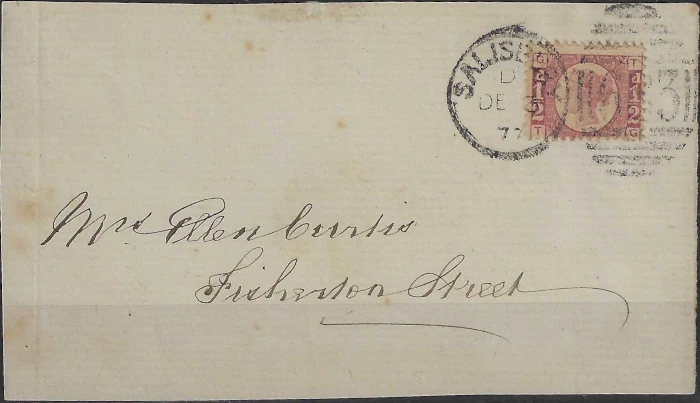 SALISB
D
DE 3
77
G T
½d ½d
T G
Mrs Ellen Curtis
Fisherton Street